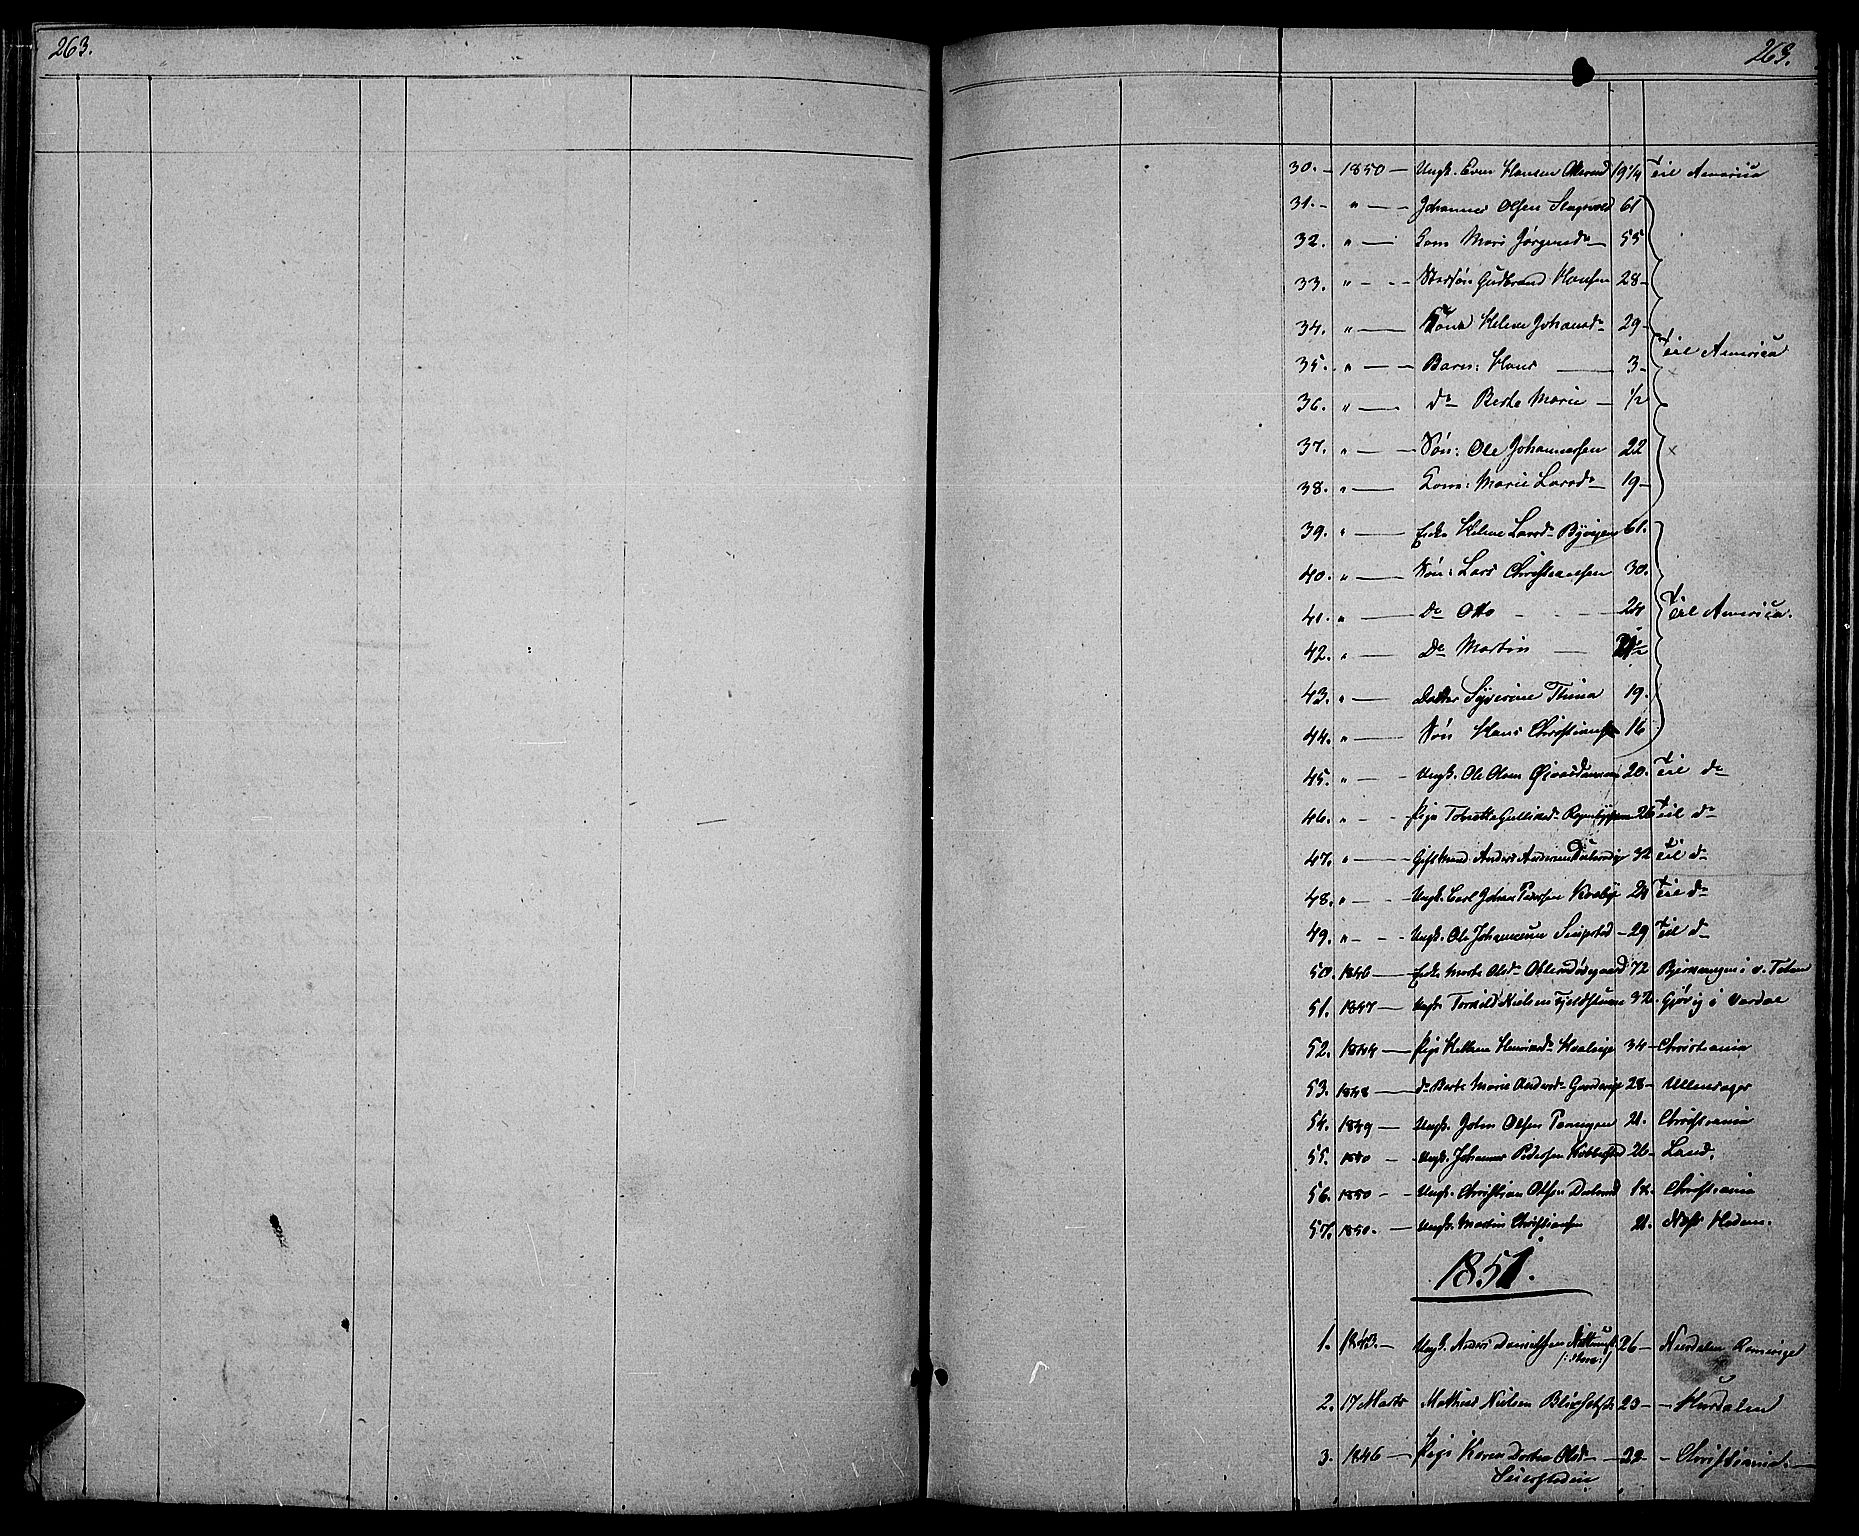 263.
263.
30. - 1850 - Ungk. Even Hansen 19 1/4 Til America
31. - " - Johannes Olsen 61
32. " - Kone Mari Jørgensd. - 55
33. " - - - Gudbrand Hansen 28 -
34. " - Kone Helene Johansd. 29 - Til America
35. " - - Barn: Hans - 3 -
36. " - do Berte Marie - 1/2
37. " - - Søn: Ole Johannesen 22
38. " - Kone: Marie Larsd. - 19 -
39. " - Enke Helene Larsd. 61.
40. " - Søn: Lars Christiansen 30.
41. " - do Otto - - - 24 Til America.
42. " - do Martin -
43. " - Datter Syverine Thina 19.
44. " - Søn Hans Christiansen 16
45. " - - Ungk. Ole Olsen 20. Til do
46. " - - Pige 26 Til do
47. " - Gift Mand Anders Andersen 32 Til do
48. " - - - Ungk. Carl Johan Pedersen 24 Til do
49. " - - - Ungk. Ole Johannesen - 29 Til do
50. 1846 - Enke Marte Olsd. 72 i v. Toten
51. 1847 - Ungk. Nielsen 32. Gjøvig i Vardal
52. 1844 - Pige 34 - Christiania
53. 1848 - do Berte Marie Andersd. 28 - Ullensager
54. 1849 - Ungk. John Olsen 21. Christiania
55. - Ungk. Johannes Pedersen 26 - Land.
56. 1850 - - Ungk. Christian Olsen 18. Christiania
57. 1850. - Ungk. Martin Christiansen 21.
1851.
1. 1843. - Ungk. Anders Danielsen 26 -
2. 17 Marts Mathias Nielsen 23 - Hurdalen
3. 1846 - Pige Karen Dorthea Olsd. - 22 - - Christiania. -